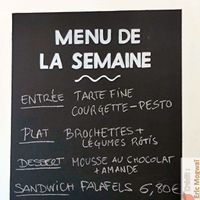 MENU DE
LA SEMAINE
ENTRÉE TARTE FINE
COURGETTE-PESTO
PLAT BROCHETTES +
LÉGUMES RÔTIS
DESSERT MOUSSE AU CHOCOLAT
+ AMANDE
SANDWICH FALAFELS 5,80€
Eric Mogwaï